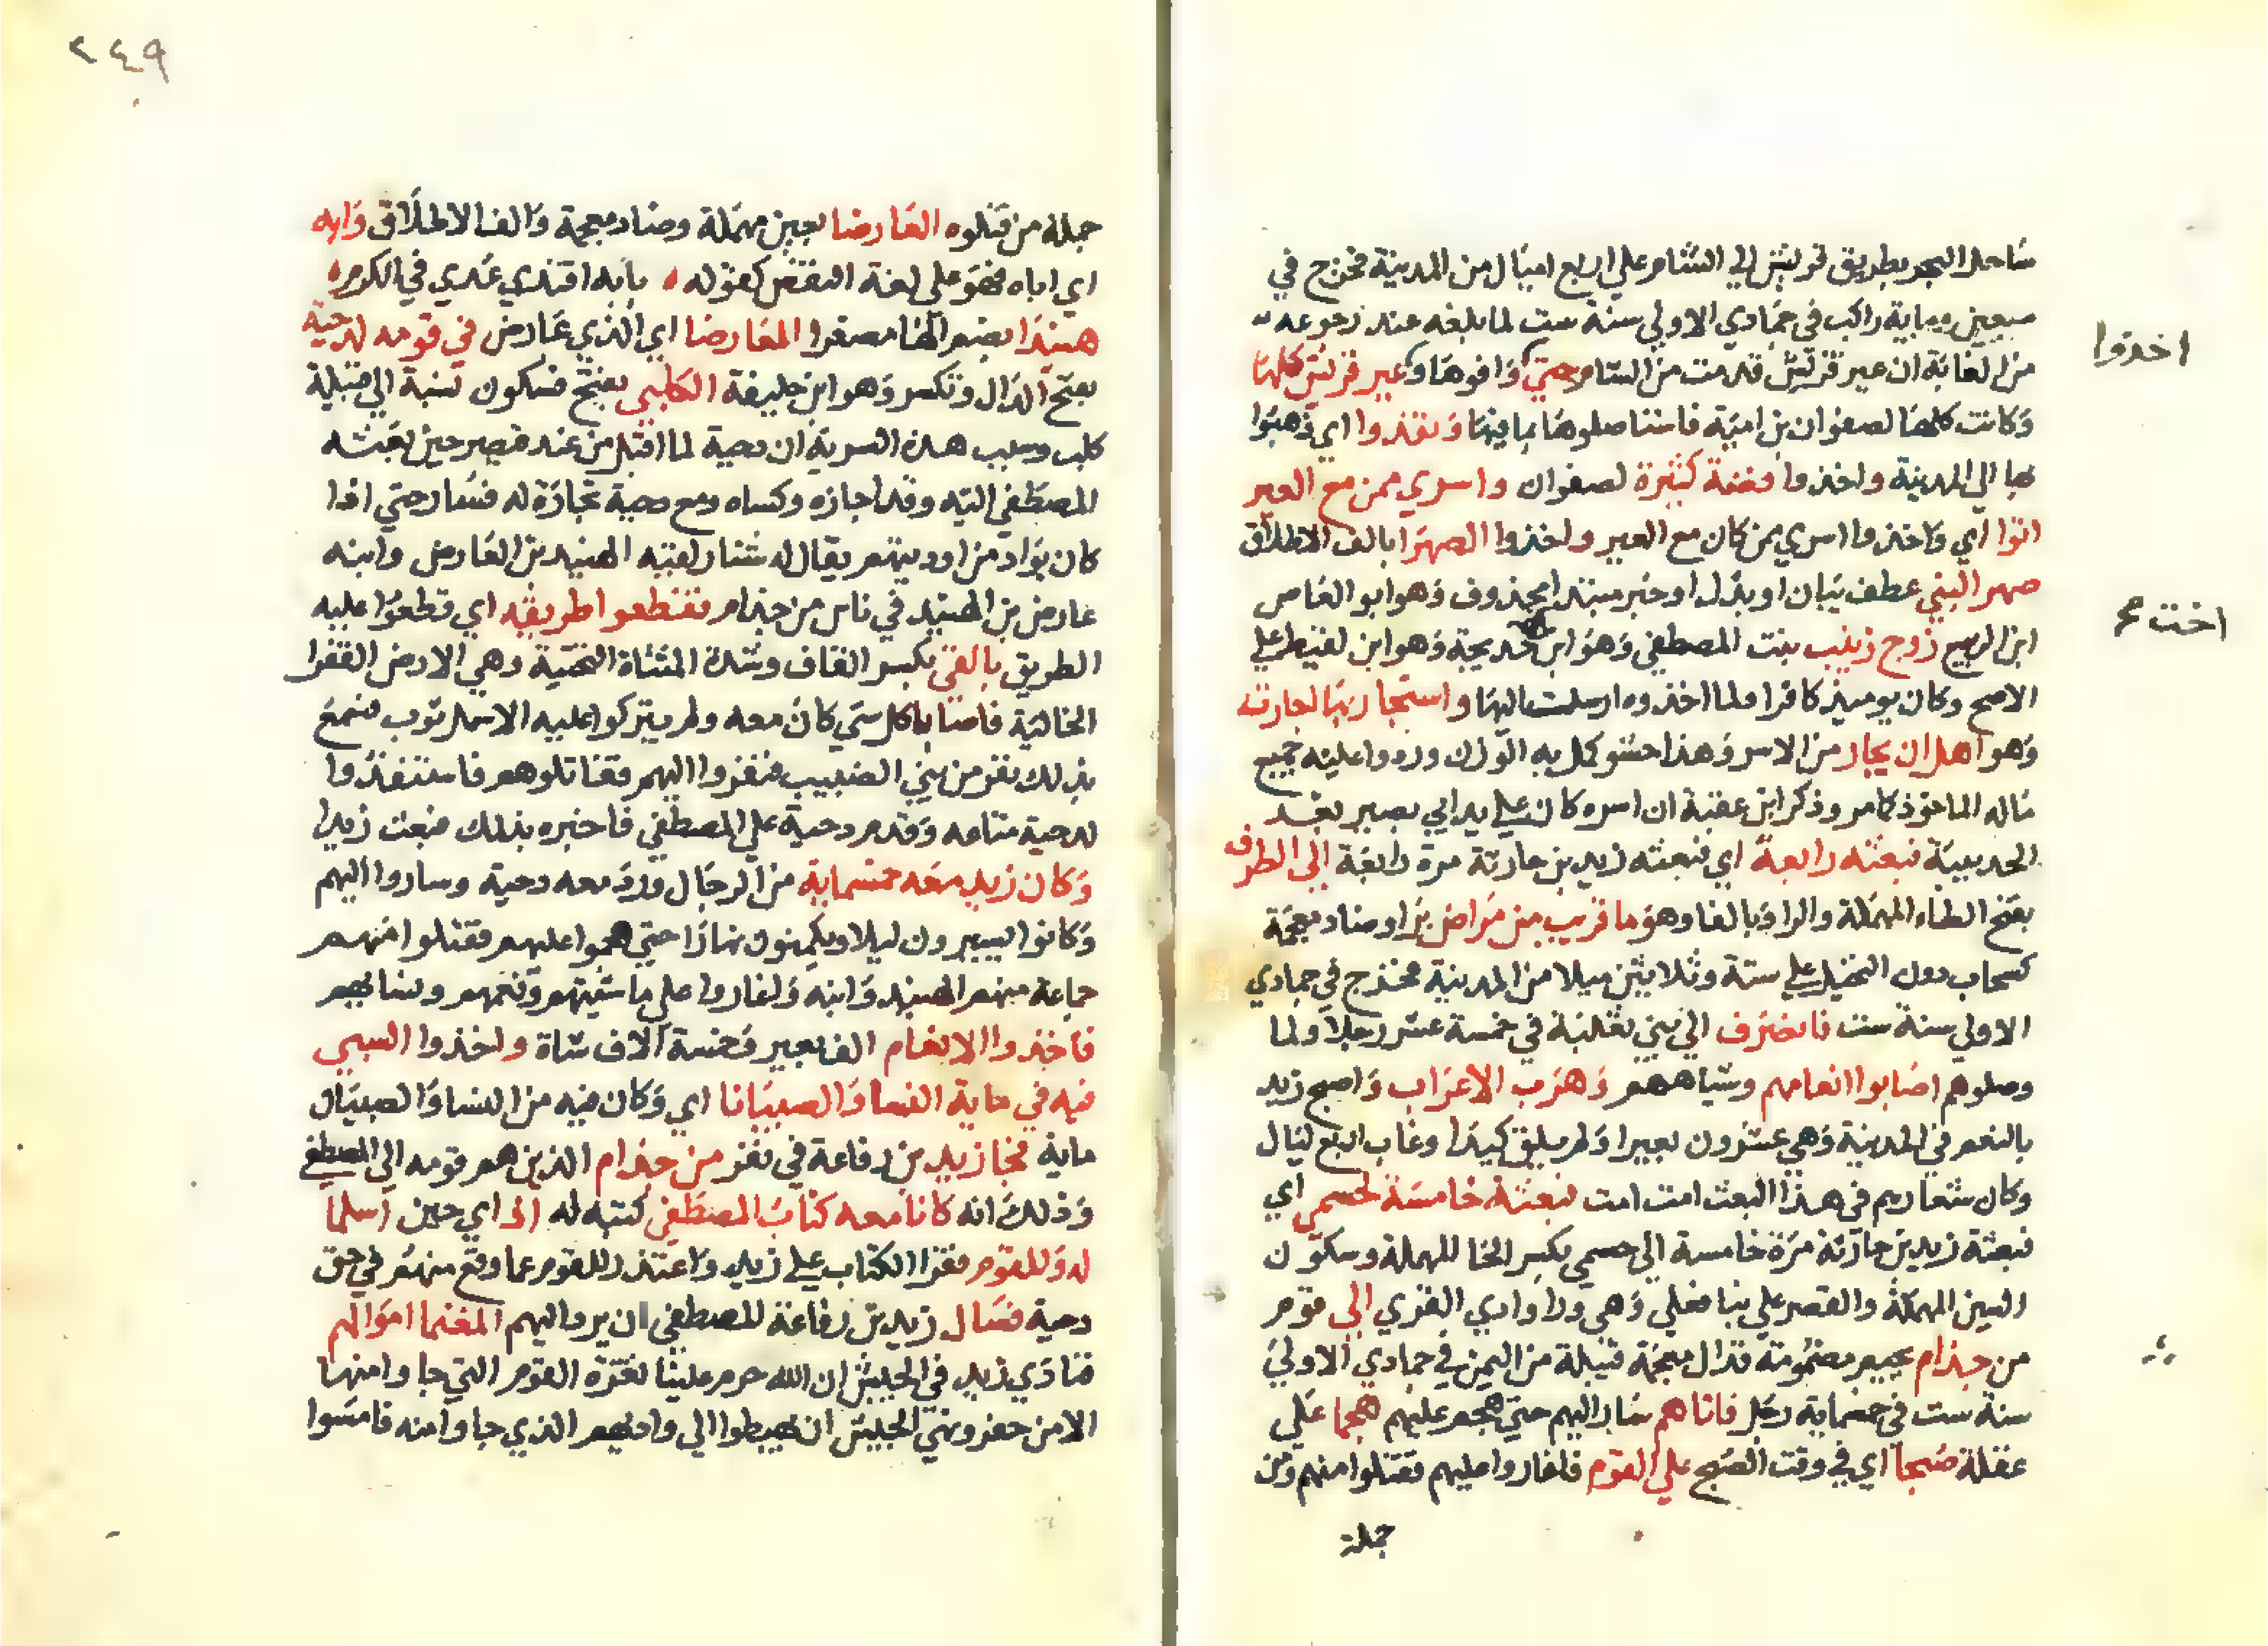 ساحل البحر بطريق قريش الي الشام علي اربع اميال من المدينة فخرج في
سبعين وماية راكب في جمادي الاولي سنة ست لما بلغه عند رجوعه
من الغابة ان عير قريش قدمت من الشام حتي وافوها وعير قريش كلها
اخذوا
وكانت كلها لصفوان بن امية فاستاصلوها بما فيها ونفذوا اي ذهبوا
بها الي المدينة واخذوا فضة كثيرة لصفوان واسري ممن مع العير
اتوا اي واخذوا اسري ممن كان مع العير واخذوا الصهرا بالف الاطلاق
صهر النبي عطف بيان او بدل او خبر مبتدا محذوف وهو ابو العاص
اخت صح
ابن الربيع زوج زينب بنت المصطفي وهو ابن خديجة وهو ابن لقيط علي
الاصح وكان يوميذ كافرا ولما اخذوه ارسلت اليها واستجار بها اجارته
وهو اهل ان يجار من الاسر وهذا حشو كمل به الوزن وردوا عليه جميع
ماله الماخوذ كامر وذكر ابن عقبة ان اسره كان علي يد ابي بصير بعد
الحديبية فبعثه رابعة اي فبعثه زيد بن حارثة مرة رابعة الي الطرف
بفتح الطاء المهملة والرا وبالفا وهو ما قريب من مراض برا وضاد معجمة
كسحاب دون النخيل علي ستة وثلاثين ميلا من المدينة فخرج في جمادي
الاولي سنة ست فانصرف الي بني ثعلبة في خمسة عشر رجلا ولما
وصلوهم اصابوا انعامهم وشياههم وهرب الاعراب واصبح زيد
بالنعم في المدينة وهي عشرون بعيرا ولم يلق كيدا وغاب اربع ليال
وكان شعارهم في هذا البعث امت امت فبعثة خامسة لحسمي اي
فبعثة زيد بن حارثة مرة خامسة الي حسمي بكسر الحا المهملة وسكون
السين المهملة والقصر علي بنا فعلي وهي ورا وادي القري الي قوم
من جذام بجيم مضمومة فذال معجمة قبيلة من اليمن في جمادي الاولي
سنة ست في خمسماية رجل فاتاهم سار اليهم حتي هجم عليهم هجما علي
غفلة صبحا اي في وقت الصبح علي القوم فاغاروا عليهم فقتلوا منهم ومن
جملة
٢٤٩
جملة من قتلوه العارضا بعين مهملة وضاد معجمة والف الاطلاق وابه
اي اباه فهو علي لغة النقص كقوله بابه اقتدي عدي في الكرم
هنيدا بضم الها مصغرا المعارضا اي الذي عارض في قومه لدحية
بفتح الدال وتكسر وهو ابن خليفة الكلبي بفتح فسكون نسبة الي قبيلة
كلب وسبب هذه السرية ان دحية لما اقبل من عند قيصر حين بعثه
المصطفي اليه وقد اجازه وكساه ومع دحية تجارة له فسار حتي اذا
كان بواد من اوديتهم يقال له شنار لقيه الهنيد بن العارض وابنه
عارض بن الهنيد في ناس من جذام فقطعوا طريقه اي قطعوا عليه
الطريق بالقي بكسر القاف وشدة المثناة التحتية وهي الارض القفرا
الخالية فاصابا كل شي كان معه ولم يتركوا عليه الا سمل ثوب فسمع
بذلك نفر من بني الضبيب فنفروا اليهم فقاتلوهم فاستنقذوا
لدحية متاعه وقدم دحية علي المصطفي فاخبره بذلك فبعث زيدا
وكان زيد معه خمسماية من الرجال ورد معه دحية وساروا اليهم
وكانوا يسيرون ليلا ويكمنون نهارا حتي هجموا عليهم فقتلوا منهم
جماعة منهم الهنيد وابنه واغاروا علي ماشيتهم ونعمهم ونسايهم
فاخذوا الانعام الف بعير وخمسة الاف شاة واخذوا السبي
فيه في ماية النسا والصبيانا اي وكان فيه من النسا والصبيان
ماية فجا زيد بن رفاعة في نفر من جذام الذين هم قومه الي المصطفي
وذلك انه كانا معه كتاب المصطفي كتبه له اذ اي حين اسلما
له وللقوم فقرا الكتاب علي زيد واعتذر للقوم عما وقع منهم في حق
دحية فسال زيد بن رفاعة للمصطفي ان يرد اليهم المغنما اموالهم
فنادي زيد في الجيش ان الله حرم علينا ثغرة القوم التي جاوا منها
الا من خفر ونهي الجيش ان يهبطوا الي واديهم الذي جاوا منه فامسوا